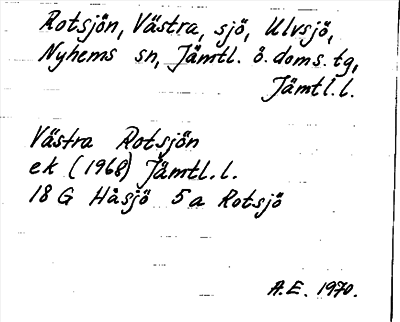 Rotsjön, Västra, sjö, Ulvsjö,
Nyhems sn, Jämtl. ö. doms. tg,
Jämtl.l.
Västra Rotsjön
ek (1968) Jämtl.l.
18 G Håsjö 5 a Rotsjö
A.E. 1970.